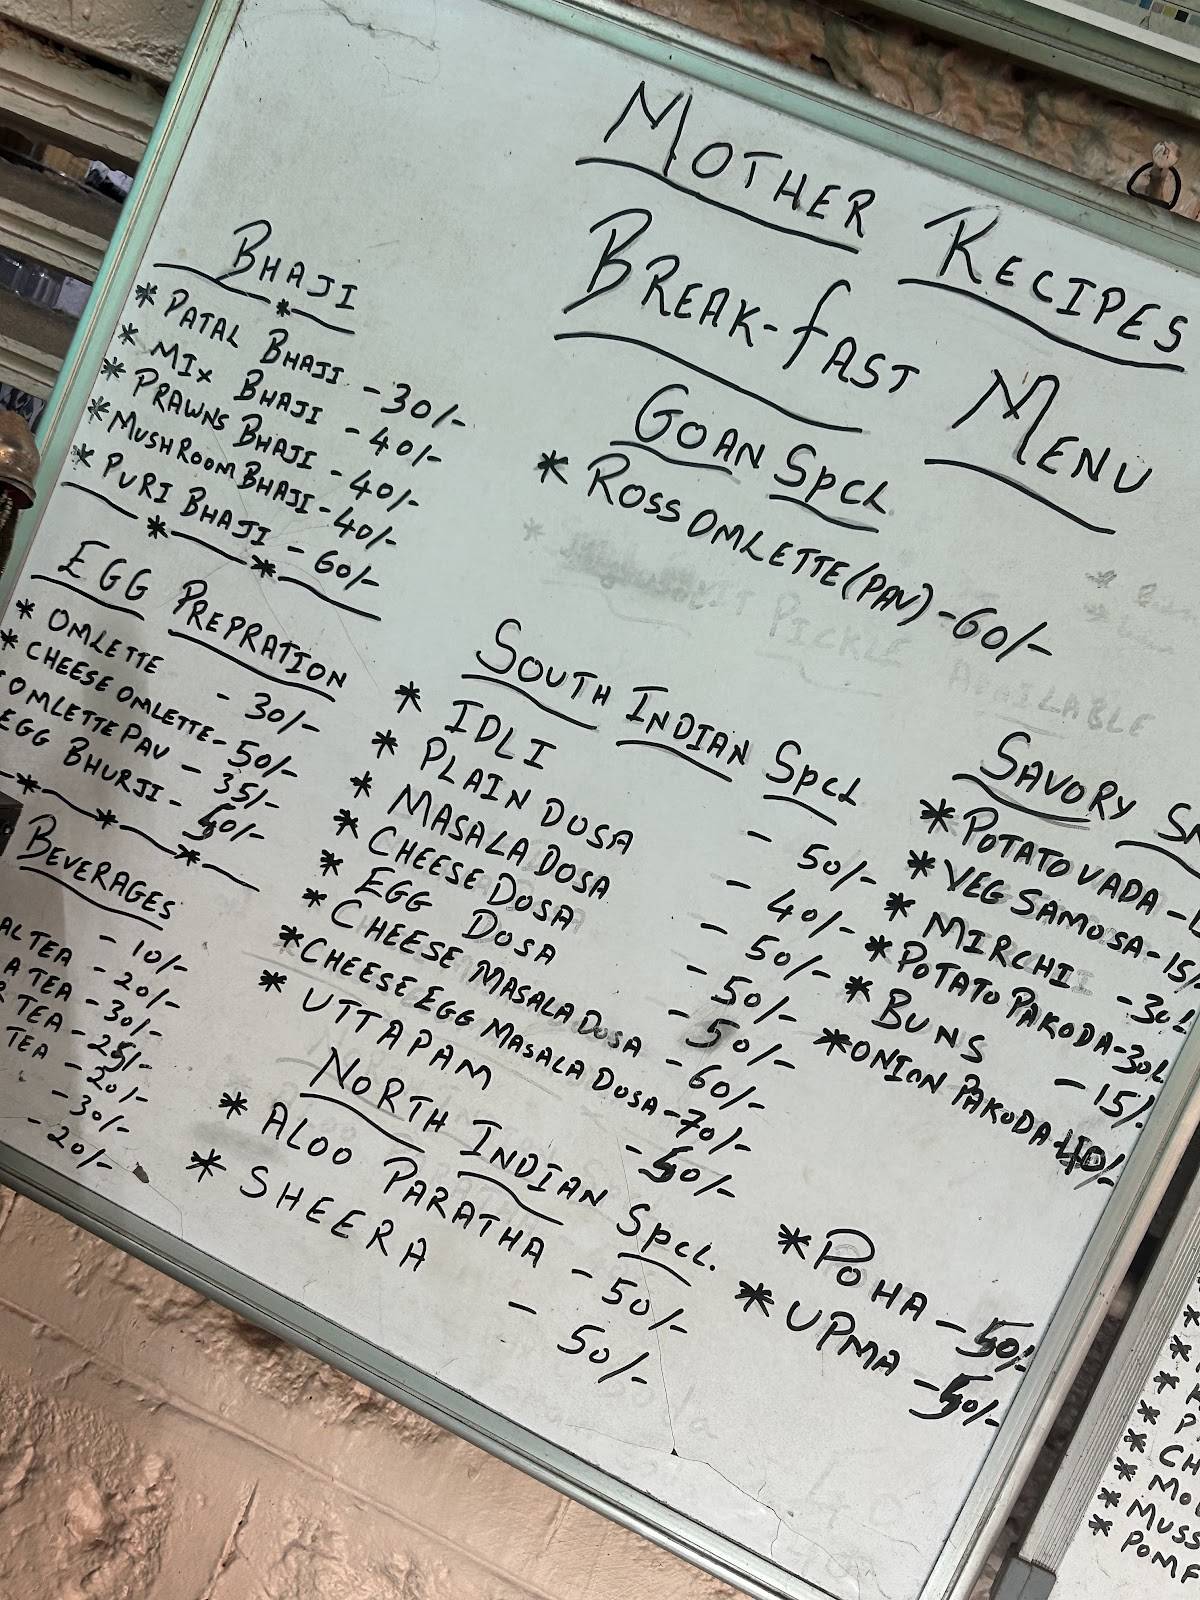 MOTHER RECIPES
BREAK-fAST MENU
BHAJI
* PATAL BHAJI - 30/-
* MIX BHAJI - 40/-
* PRAWNS BHAJI - 40/-
* MUSHROOM BHAJI - 40/-
* PURI BHAJI - 60/-
EGG PREPRATION
* OMLETTE - 30/-
* CHEESE OMLETTE - 50/-
* OMLETTE PAV - 35/-
EGG BHURJI - 50/-
BEVERAGES
- 10/-
AL TEA - 20/-
A TEA - 30/-
R TEA - 25/-
TEA - 20/-
- 30/-
- 20/-
GOAN SPCL
* ROSS OMLETTE (PAV) - 60/-
PICKLE AVAILABLE
SOUTH INDIAN SPCL
* IDLI - 50/-
* PLAIN DOSA - 40/-
* MASALA DOSA - 50/-
* CHEESE DOSA - 50/-
* EGG DOSA - 50/-
* CHEESE MASALA DOSA - 60/-
* CHEESE EGG MASALA DOSA - 70/-
* UTTAPAM - 50/-
NORTH INDIAN SPCL.
* ALOO PARATHA - 50/-
* SHEERA - 50/-
SAVORY SN
* POTATO VADA -
* VEG SAMOSA - 15/
* MIRCHI - 30/-
* POTATO PAKODA - 30/
* BUNS - 15/-
* ONION PAKODA - 40/-
* POHA - 50/-
* UPMA - 50/-
* P
* CH
* MO
* MUSS
* POMF